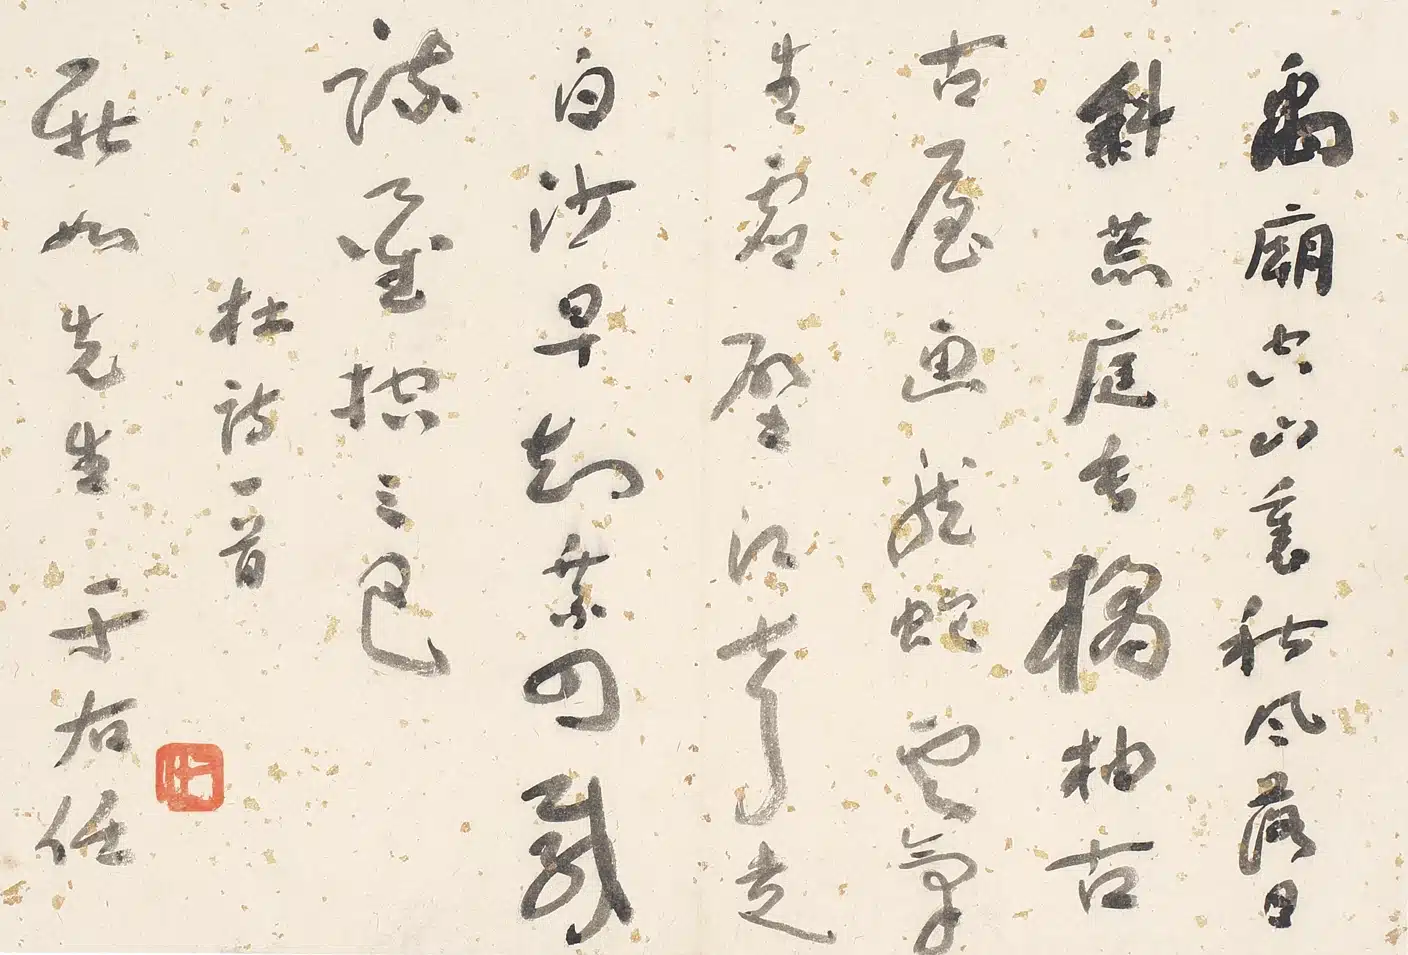 禹廟空山裏秋風落日
斜荒庭垂橘柚古
古屋画龍蛇雲氣
生虛壁江聲走
白沙早知乘四載
疏鑿控三巴
杜詩一首
如先生 于右任
右任